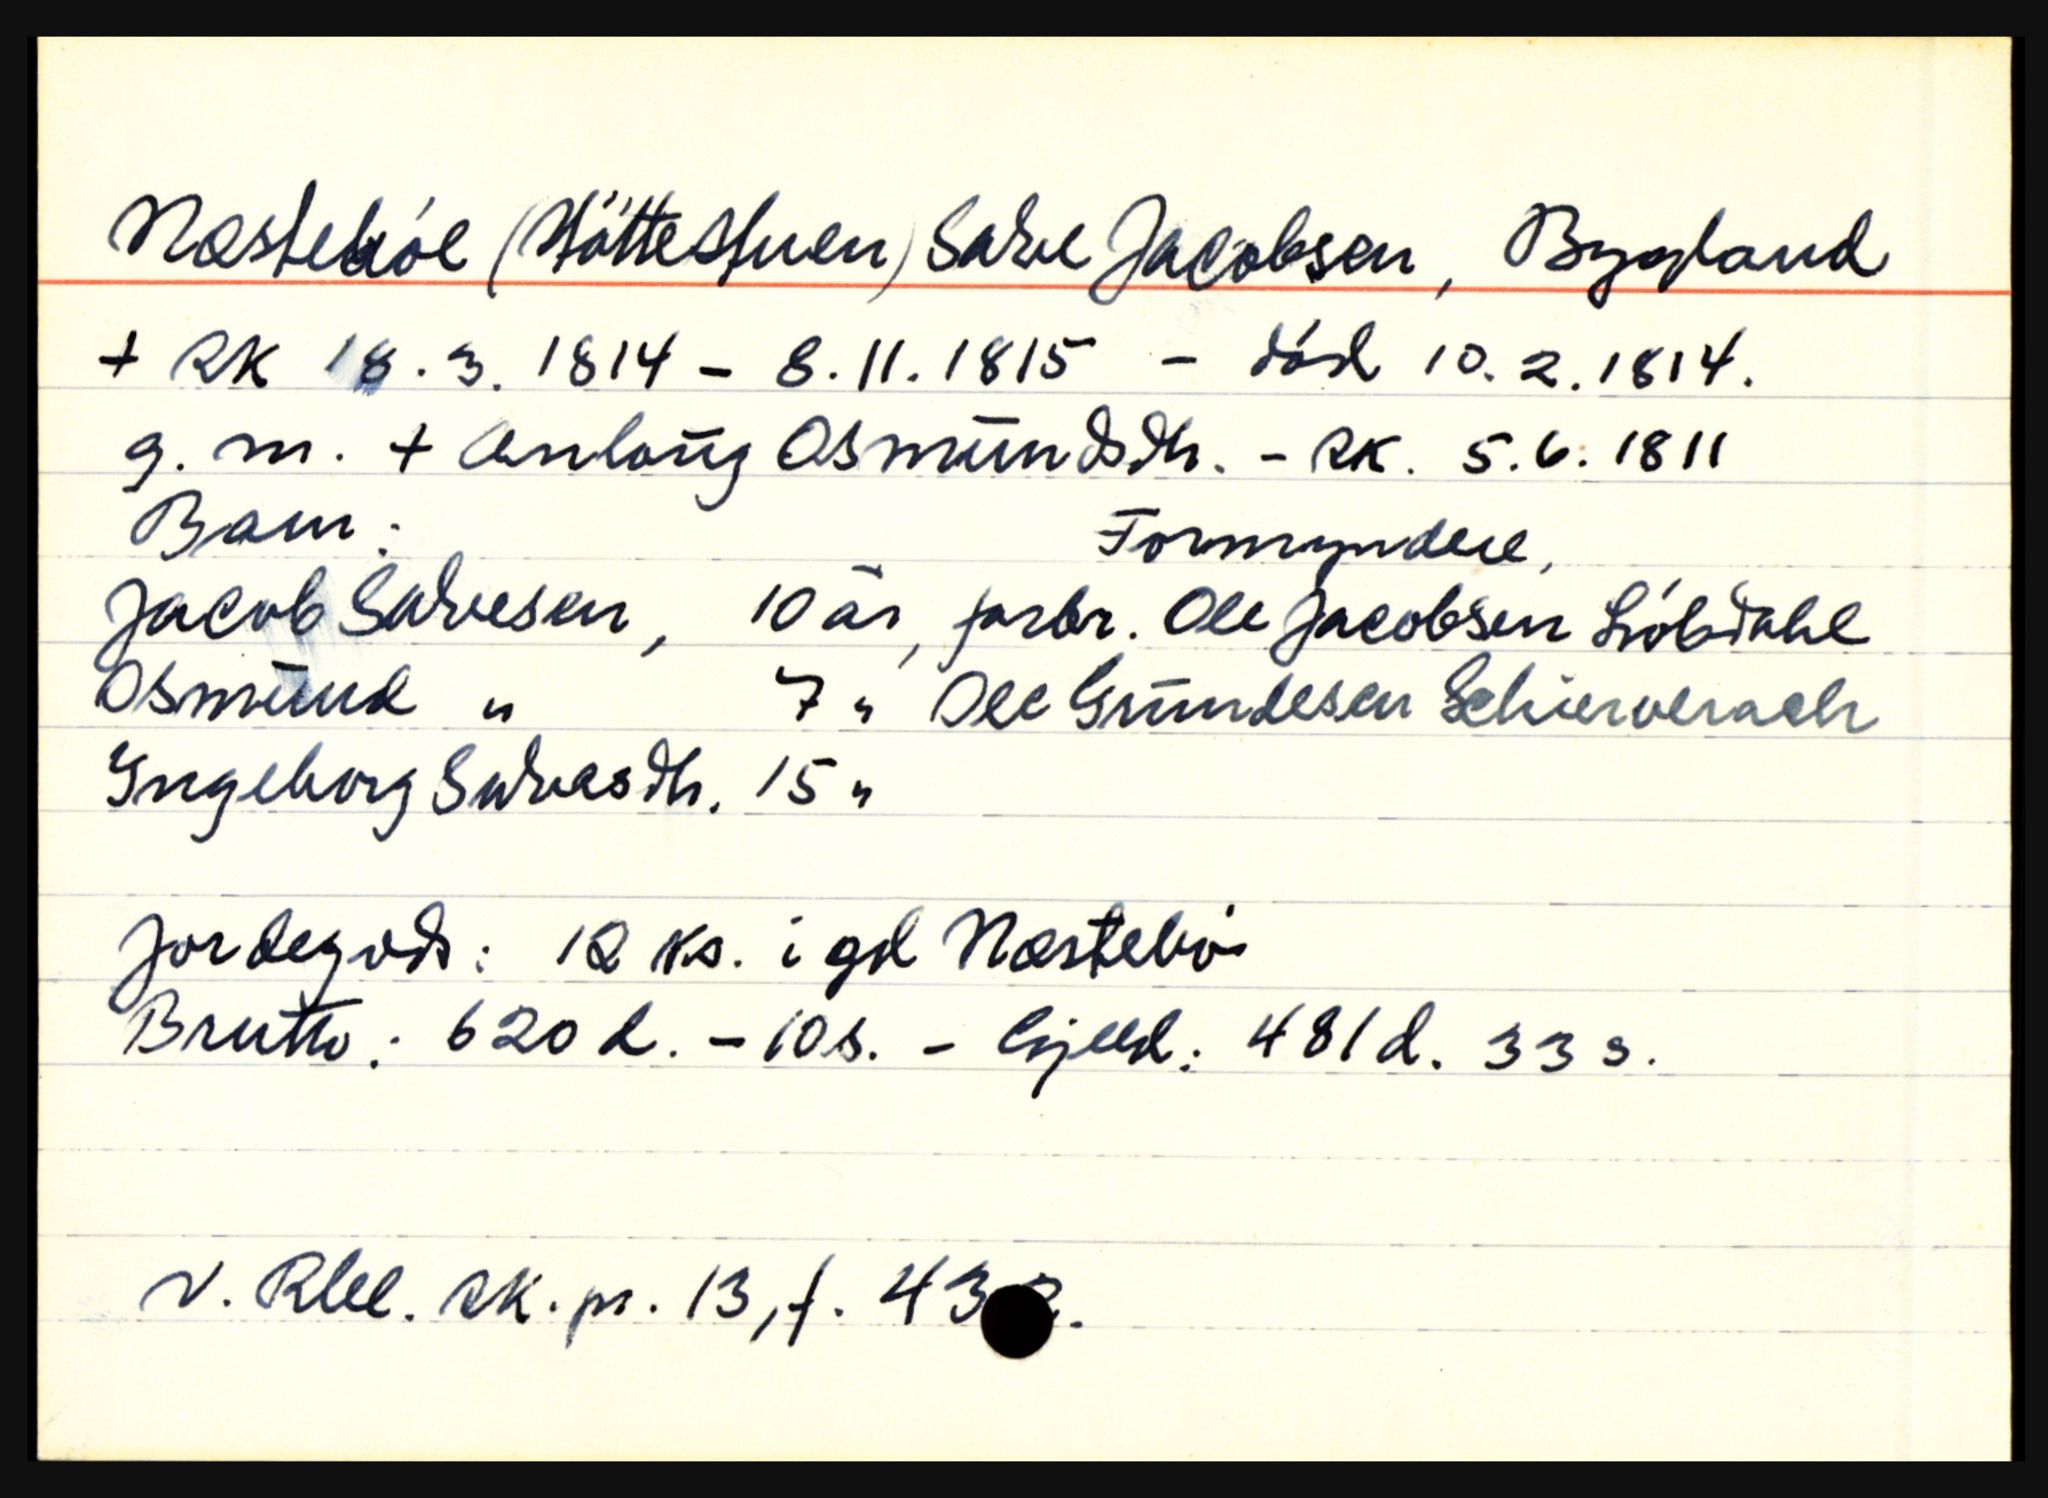 Næstebøe (Støttestuen) Salve Jacobsen, Bygland
+ SK 18.3.1814 - 8.11.1815 - død 10.2.1814.
g. m. + Anloug Osmundsdtr. - SK. 5.6.1811
Barn: Formyndere,
Jacob Salvesen, 10 år, farbr. Ole Jacobsen Liøbdahl
Osmund " 7 " Ole Gundesen Schierverach
Ingeborg Salvesdtr. 15 "
Jordegods: 12 ks. i gd Næstebø
Brutto: 620 d. - 10 s. - Gjeld: 481 d. 33 s.
V. Rbl. SK. pr. 13, f. 43